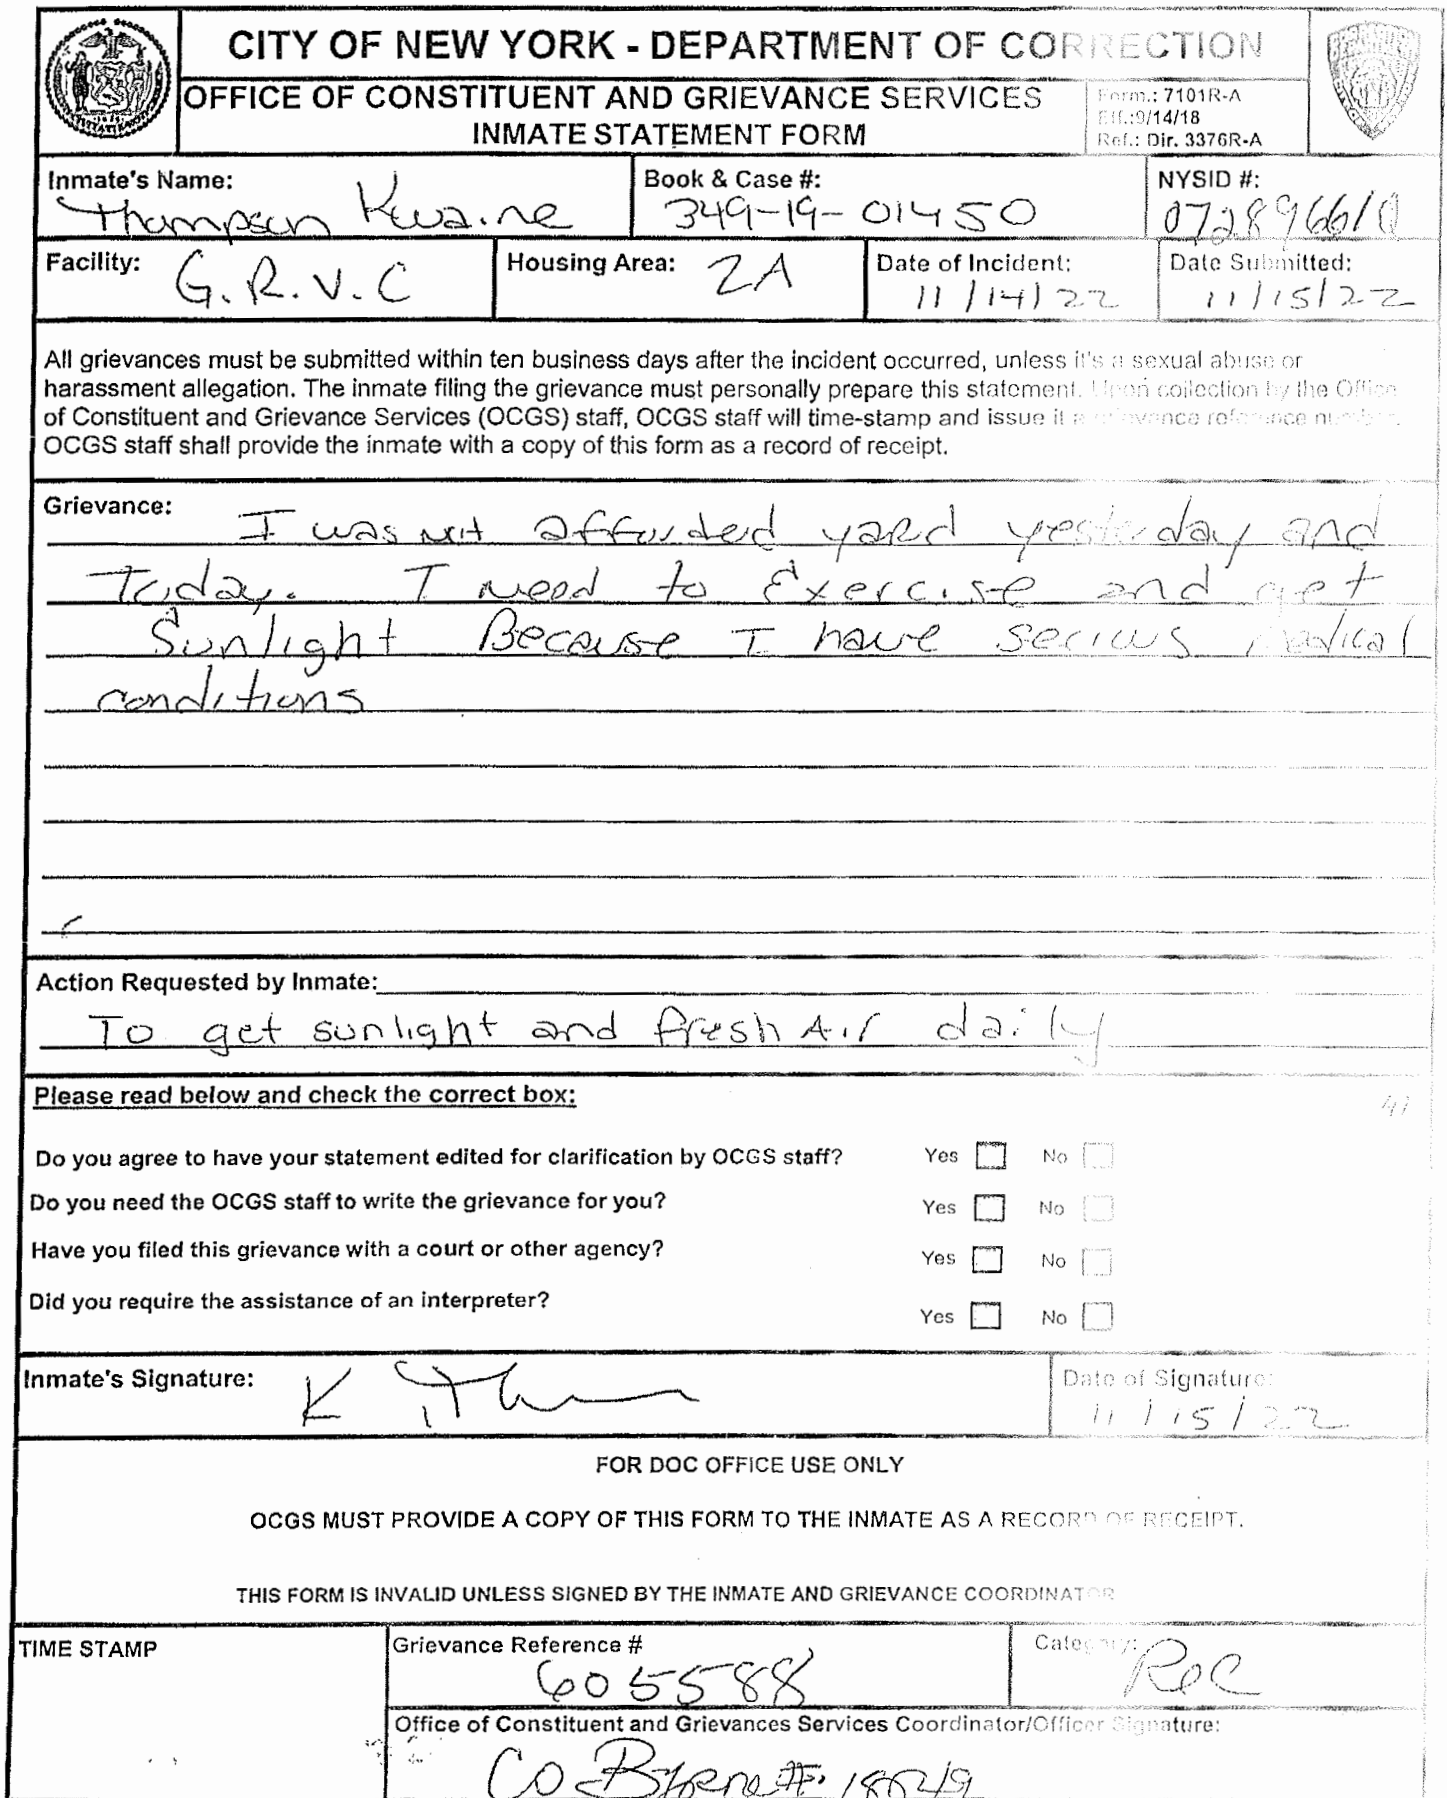 CITY OF NEW YORK - DEPARTMENT OF CORRECTION
OFFICE OF CONSTITUENT AND GRIEVANCE SERVICES
INMATE STATEMENT FORM
Form.: 7101R-A
Eff.:9/14/18
Ref.: Dir. 3376R-A
Inmate's Name:
Thompson Kwaine
Book & Case #:
349-19-01450
NYSID #:
Facility: G.R.V.C
Housing Area: 2A
Date of Incident:
11/14/22
Date Submitted:
11/15/22
All grievances must be submitted within ten business days after the incident occurred, unless it's a sexual abuse or
harassment allegation. The inmate filing the grievance must personally prepare this statement. Upon collection by the Office
of Constituent and Grievance Services (OCGS) staff, OCGS staff will time-stamp and issue it a grievance reference number.
OCGS staff shall provide the inmate with a copy of this form as a record of receipt.
Grievance: I was not afforded yard yesterday and
Today. I need to Exercise and get
Sunlight Because I have serious medical
conditions
Action Requested by Inmate:
To get sunlight and fresh Air daily
Please read below and check the correct box:
Do you agree to have your statement edited for clarification by OCGS staff? Yes No
Do you need the OCGS staff to write the grievance for you? Yes No
Have you filed this grievance with a court or other agency? Yes No
Did you require the assistance of an interpreter? Yes No
Inmate's Signature: K Th
Date of Signature:
11/15/22
FOR DOC OFFICE USE ONLY
OCGS MUST PROVIDE A COPY OF THIS FORM TO THE INMATE AS A RECORD OF RECEIPT.
THIS FORM IS INVALID UNLESS SIGNED BY THE INMATE AND GRIEVANCE COORDINATOR
TIME STAMP
Grievance Reference #
605588
Category: Rec
Office of Constituent and Grievances Services Coordinator/Officer Signature:
CO Byrne #